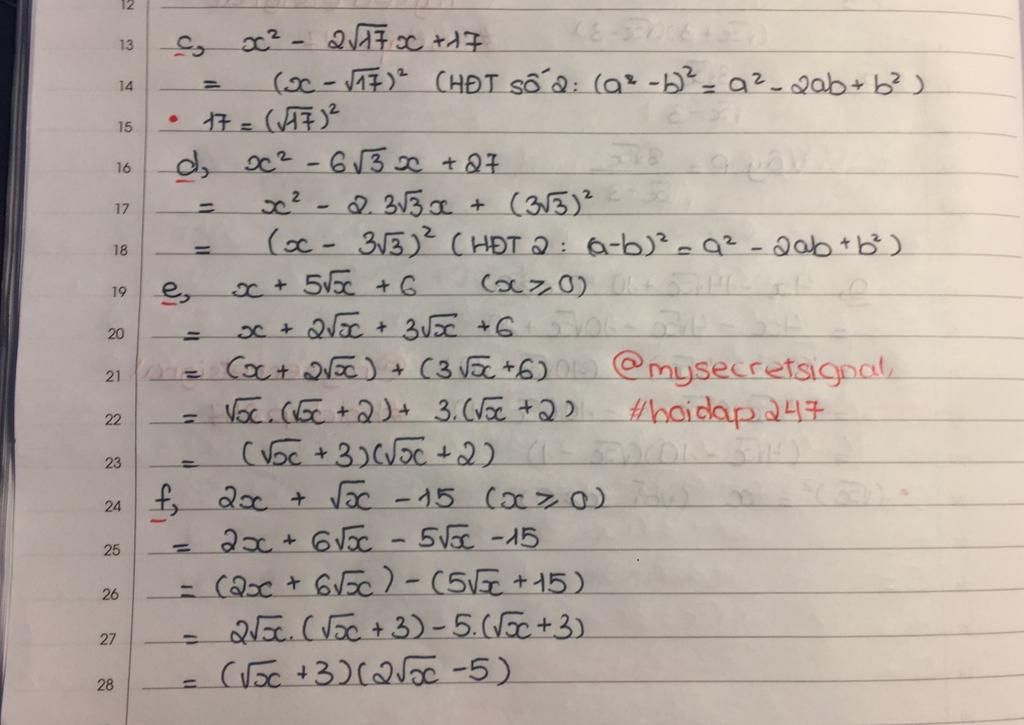 12
13 c, x² - 2√17x + 17
14 = (x - √17)² (HĐT số 2: (a² - b)² = a² - 2ab + b²)
15 • 17 = (√17)²
16 d, x² - 6√3x + 27
17 = x² - 2.3√3x + (3√3)²
18 = (x - 3√3)² (HĐT 2: a-b)² = a² - 2ab + b²)
19 e, x + 5√x + 6 (x ≥ 0)
20 = x + 2√x + 3√x + 6
21 = (x + 2√x) + (3√x + 6) @mysecretsignal,
22 = √x.(√x + 2) + 3.(√x + 2) #hoidap247
23 = (√x + 3)(√x + 2)
24 f, 2x + √x - 15 (x ≥ 0)
25 = 2x + 6√x - 5√x - 15
26 = (2x + 6√x) - (5√x + 15)
27 = 2√x.(√x + 3) - 5.(√x + 3)
28 = (√x + 3)(2√x - 5)